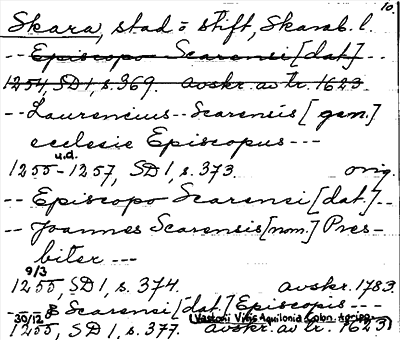 10.
Skara, stad o stift, Skarab. l.
-- Episcopo Scarensi [dat] --
1254, SD 1, s. 369. avskr. av tr. 1623
-- Laurencius -- Scarensis [gen.]
ecclesie Episcopus ---
u.d.
1255-1257, SD 1, s. 373. orig.
-- Episcopo Scarensi [dat] --
-- Joannes Scarensis [nom.] Pres-
biter ---
9/3
1255, SD 1, s. 374. avskr. 1783.
-- Scarensi [dat] Episcopis ---
30/12 (Vastovii Vitis Aquilonia Colon. Agripp.
1255, SD 1, s. 377. avskr. av tr. 1623)